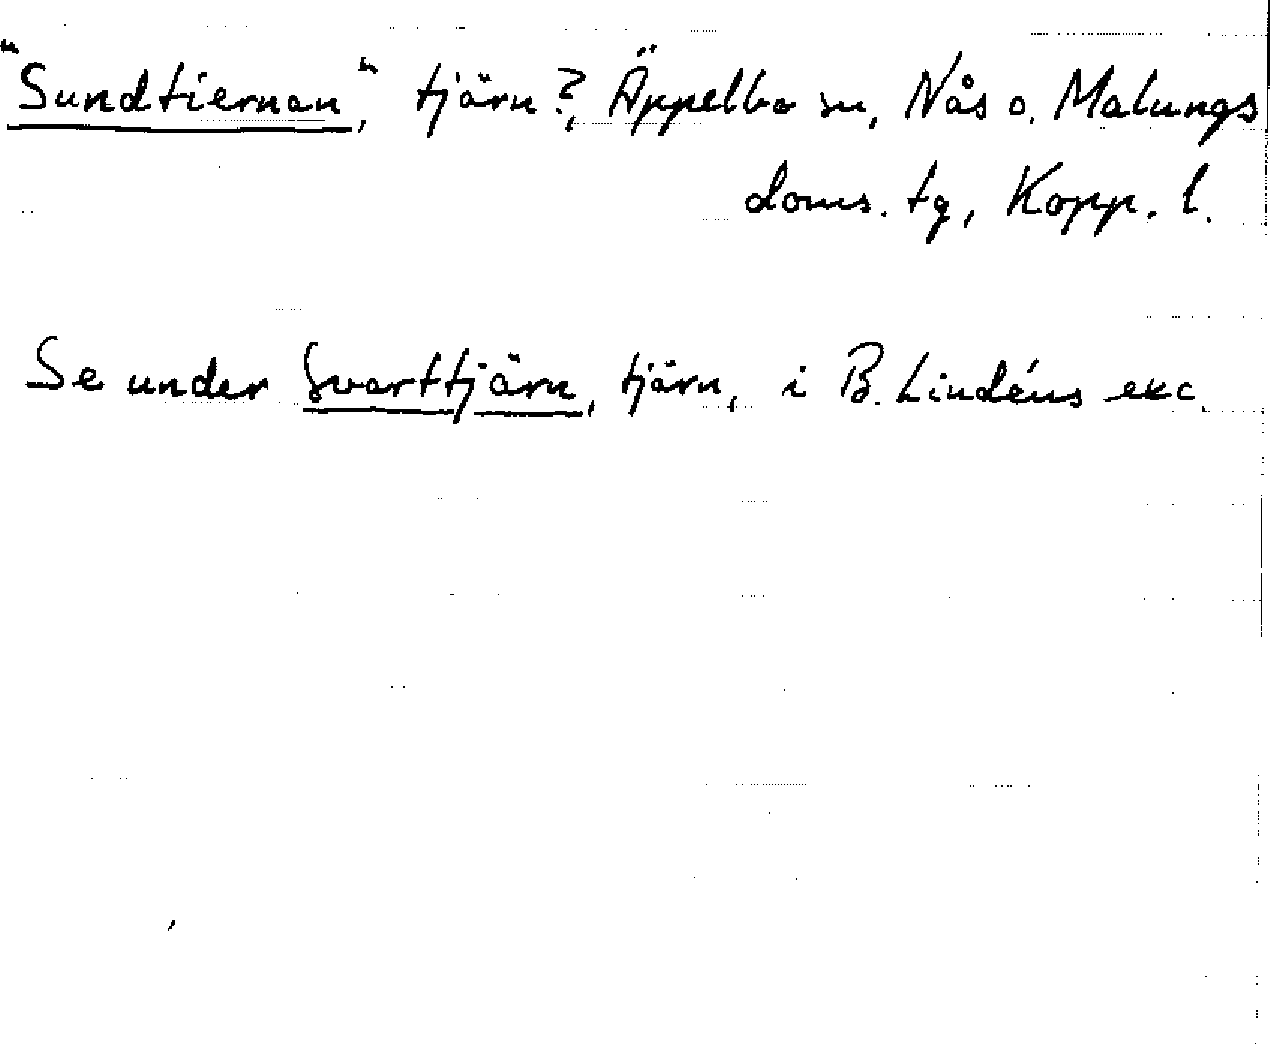 "Sundtiernan", tjärn?, Äppelbo sn, Nås o. Malungs
doms. tg, Kopp. l.
Se under Svarttjärn, tjärn, i B. Lindéns exc.